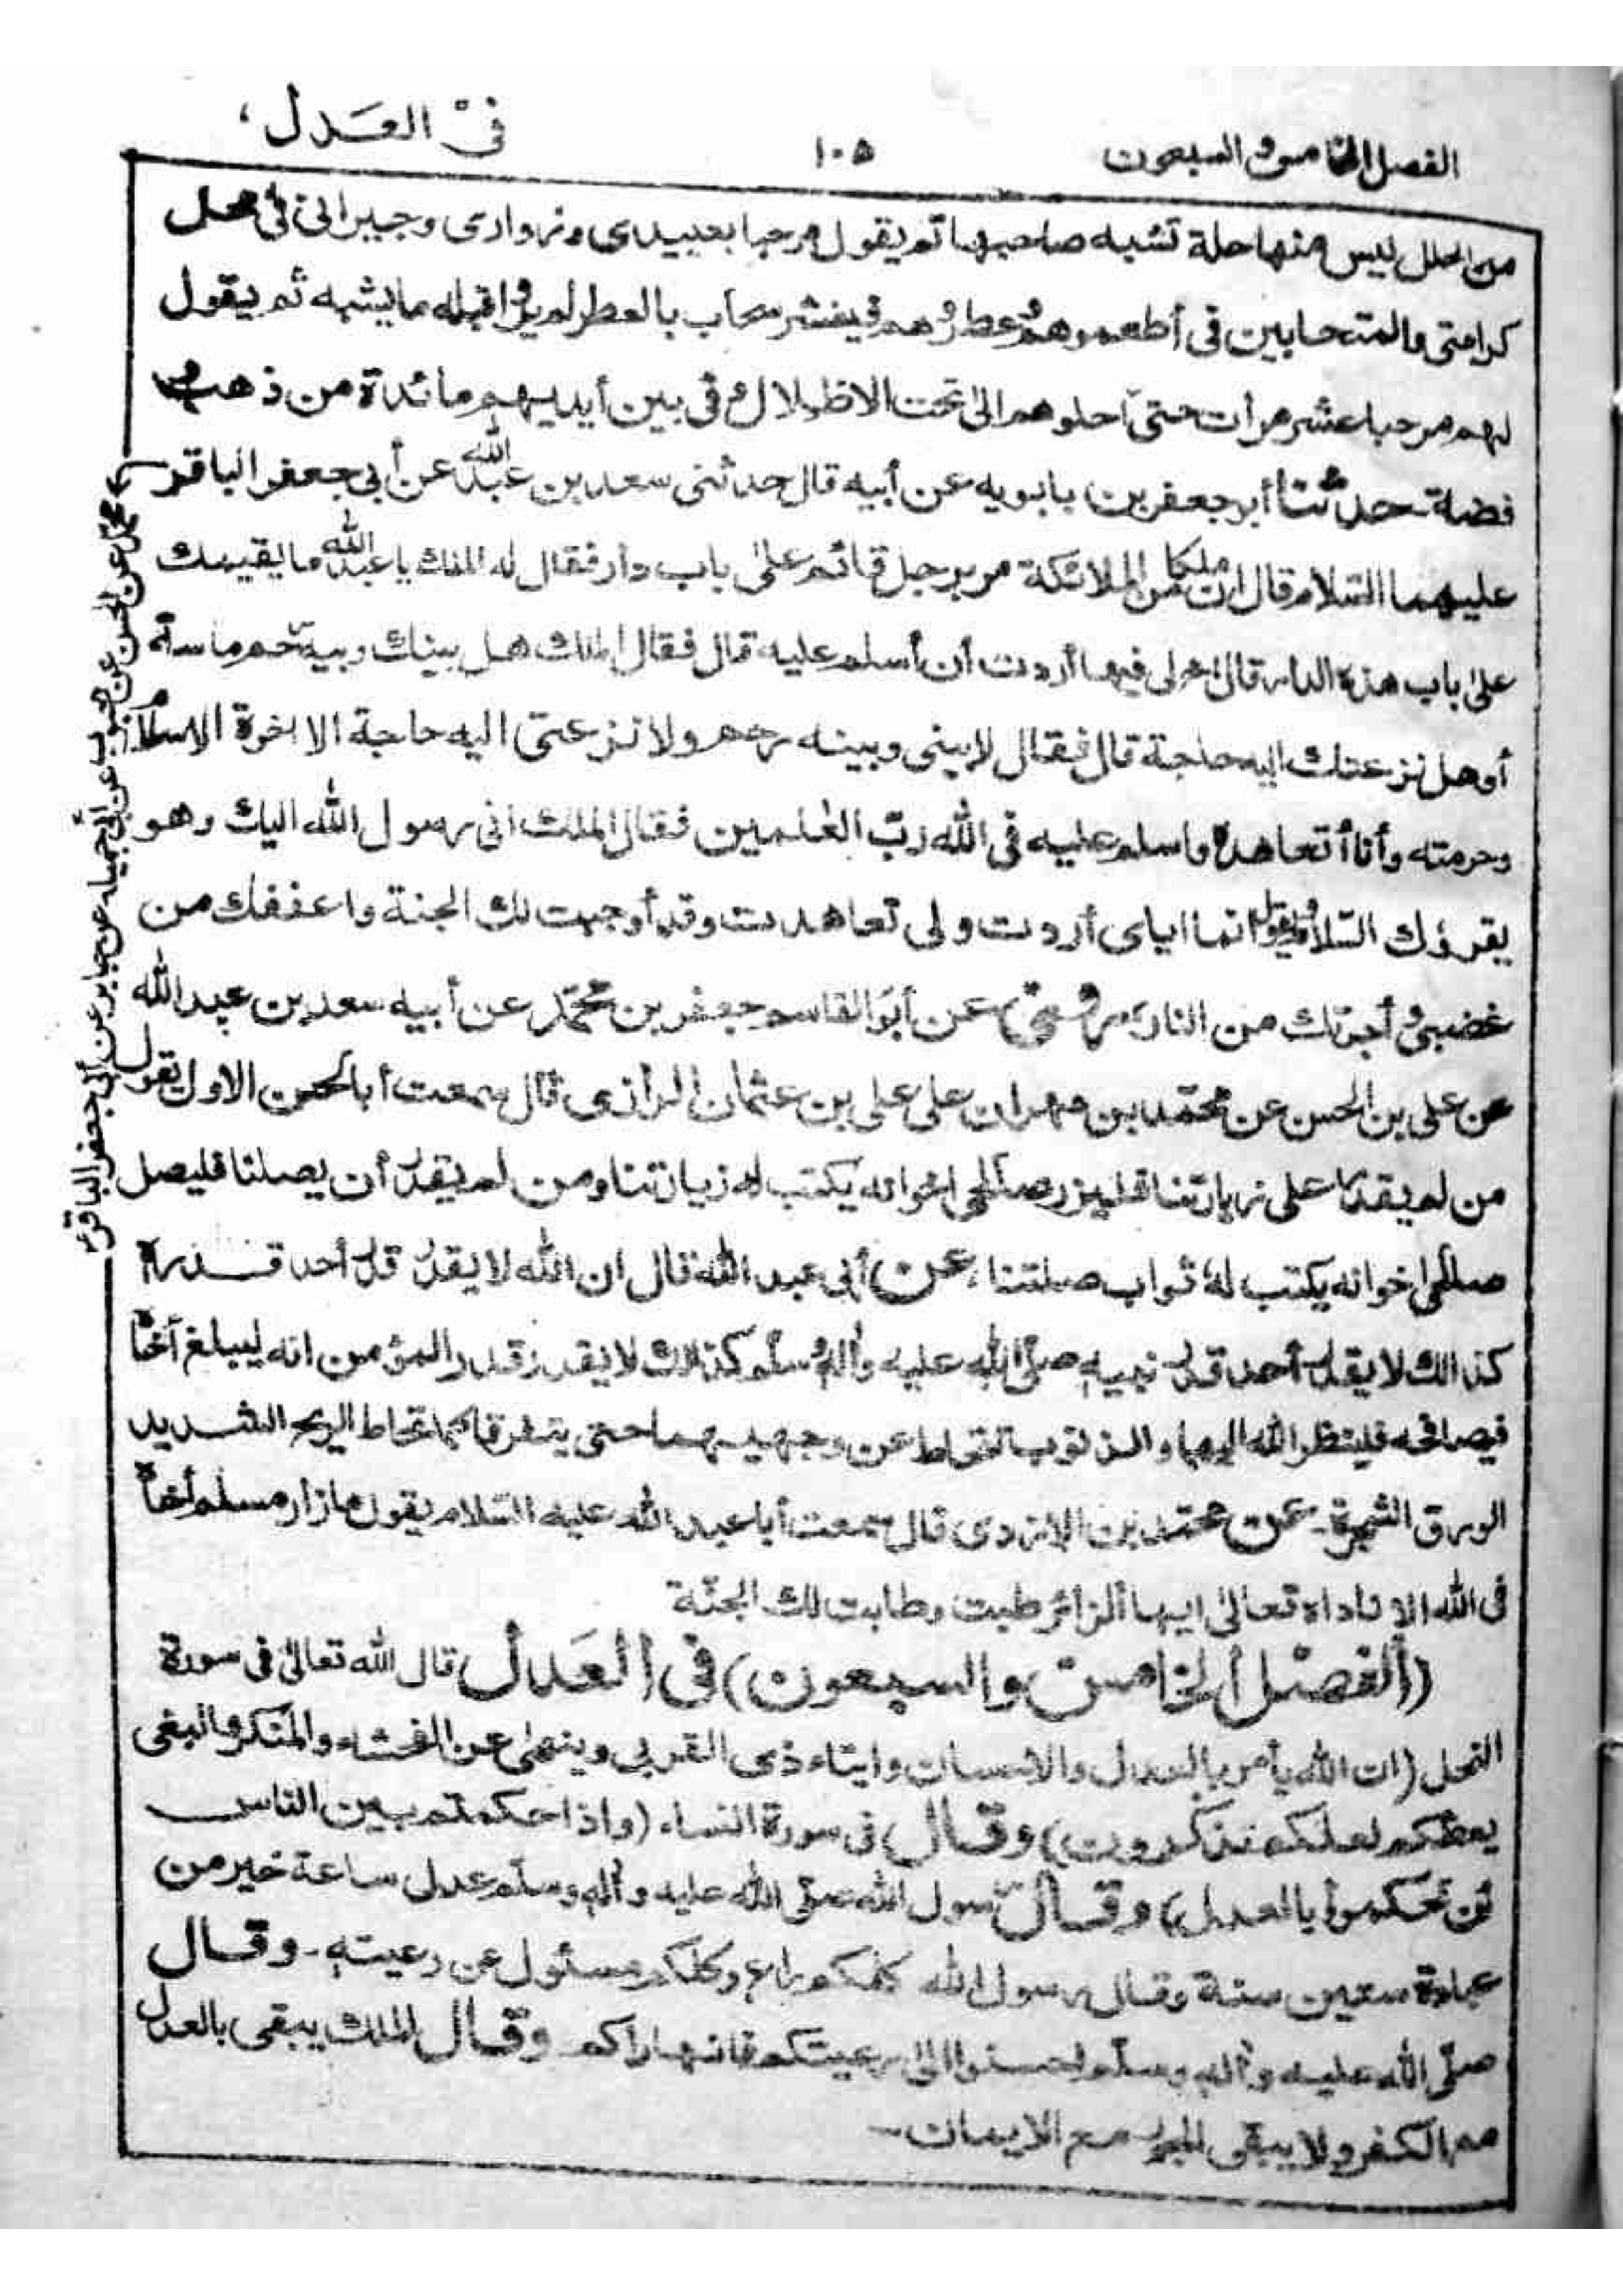 الفصل الخامس و السبعون
١٠٥
فى العدل
من الحلل ليس منها حلة تشبه صاحبها ثم يقول مرحبا بعبيدى وزوارى وجيرانى فى محل
كرامتى والمتحابين فى أطعموهم عطروهم فينشر سحاب بالعطر لم يروا قبله ما يشبهه ثم يقول
لهم مرحبا عشر مرات حتى أحلوهم الى تحت الاظلال و فى بين أيديهم مائدة من ذهب و
فضة حدثنا أبو جعفر بن بابويه عن أبيه قال حدثنى سعد بن عبد الله عن أبى جعفر الباقر
عليهما السلام قال ان ملكا من الملائكة مر برجل قائم على باب دار فقال له الملك يا عبد الله ما يقيمك
على باب هذه الدار قال اخ لى فيها أردت أن أسلم عليه قال فقال الملك هل بينك وبينه رحم ماسة
أو هل نزعتك اليه حاجة قال فقال لا بينى وبينه رحم ولا نزعتنى اليه حاجة الا اخوة الاسلام
وحرمته وأنا أتعاهده واسلم عليه فى الله رب العلمين فقال الملك انى رسول الله اليك وهو
يقرؤك السلام ويقول انما اياى أردت ولى تعاهدت وقد أوجبت لك الجنة واعففك من
غضبى و أجرتك من النار عن أبو القاسم جعفر بن محمد عن أبيه سعد بن عبد الله
عن على بن الحسن عن محمد بن مهران على على بن عثمان الرازى قال سمعت أبا الحسن الاول يقول
من لم يقدر على زيارتنا فليزر صالحى اخوانه يكتب له زيارتنا ومن لم يقدر أن يصلنا فليصل
صالحى اخوانه يكتب له ثواب صلتنا، عن أبى عبد الله قال ان الله لا يقدر قدر أحد قدره
كذالك لا يقدر أحد قدر نبيه صلى الله عليه وآله وسلم كذلك لا يقدر قدر المؤمن انه ليبلغ أخاه
فيصافحه فلينظر الله اليهما والذنوب تتحاط عن وجهيهما حتى يتفرقا كما تحاط الريح الشديد
الورق الشجرة. عن محمد بن الازدى قال سمعت أبا عبد الله عليه السلام يقول ما زار مسلم أخاه
فى الله الا ناداه تعالى ايها الزائر طبت وطابت لك الجنة
(الفصل الخامس والسبعون) فى العدل قال الله تعالى فى سورة
النحل (ان الله يأمر بالعدل والاحسان وايتاء ذى القربى وينهى عن الفحشاء والمنكر والبغى
يعظكم لعلكم تذكرون) وقال فى سورة النساء (واذا حكمتم بين الناس
أن تحكموا بالعدل) وقال رسول الله صلى الله عليه وآله وسلم عدل ساعة خير من
عبادة ستين سنة وقال رسول الله كلكم راع وكلكم مسئول عن رعيته. وقال
صلى الله عليه وآله وسلم احسنوا الى رعيتكم فانها راكم وقال الملك يبقى بالعدل
مع الكفر ولا يبقى الجور مع الايمان
محمد عن الحسن عن محبوب عن أبى جميله عن جابر عن أبى جعفر الباقر